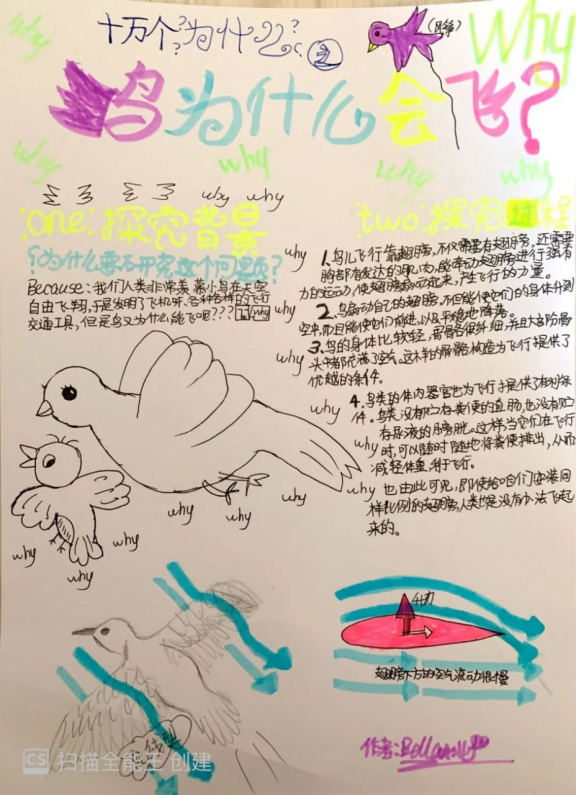 十万个?为什么??之②
(风筝)
Why
鸟为什么会飞?
why
why
why
why
why
why why
:one:探究背景
?为什么要研究这个问题?
Because:我们人类非常羡慕小鸟在天空
自由飞翔,于是发明了飞机呀、各种各样的飞行
交通工具,但是鸟又为什么能飞呢???
:two:探究过程
1.鸟儿飞行靠翅膀,不仅需有翅膀,还需要
胸部有发达的肌肉,能牵动翅膀进行强有
力的运动,使翅膀扇动起来,产生飞行的力量。
2.鸟扇动自己的翅膀,不但能使它们的身体升到
空中,而且能使它们前进,以及平稳地降落。
3.鸟的身体比较轻,骨骼很纤细,并且大部分骨
头中都充满了空气。这样的骨骼构造为飞行提供了
优越的条件。
4.鸟类的体内器官也为飞行提供了有利条
件。鸟类没有贮存粪便的直肠,也没有贮
存尿液的膀胱。这样,当它们在飞行
时,可以随时随地将粪便排出,从而
减轻体重,利于飞行。
也由此可见,即使给咱们安装同
样比例的翅膀,人类也是没有办法飞起
来的。
why
why
why
why
why
why
why
why
why
why
why
why
升力
翅膀下方的空气流动很慢
作者:
CS 扫描全能王 创建